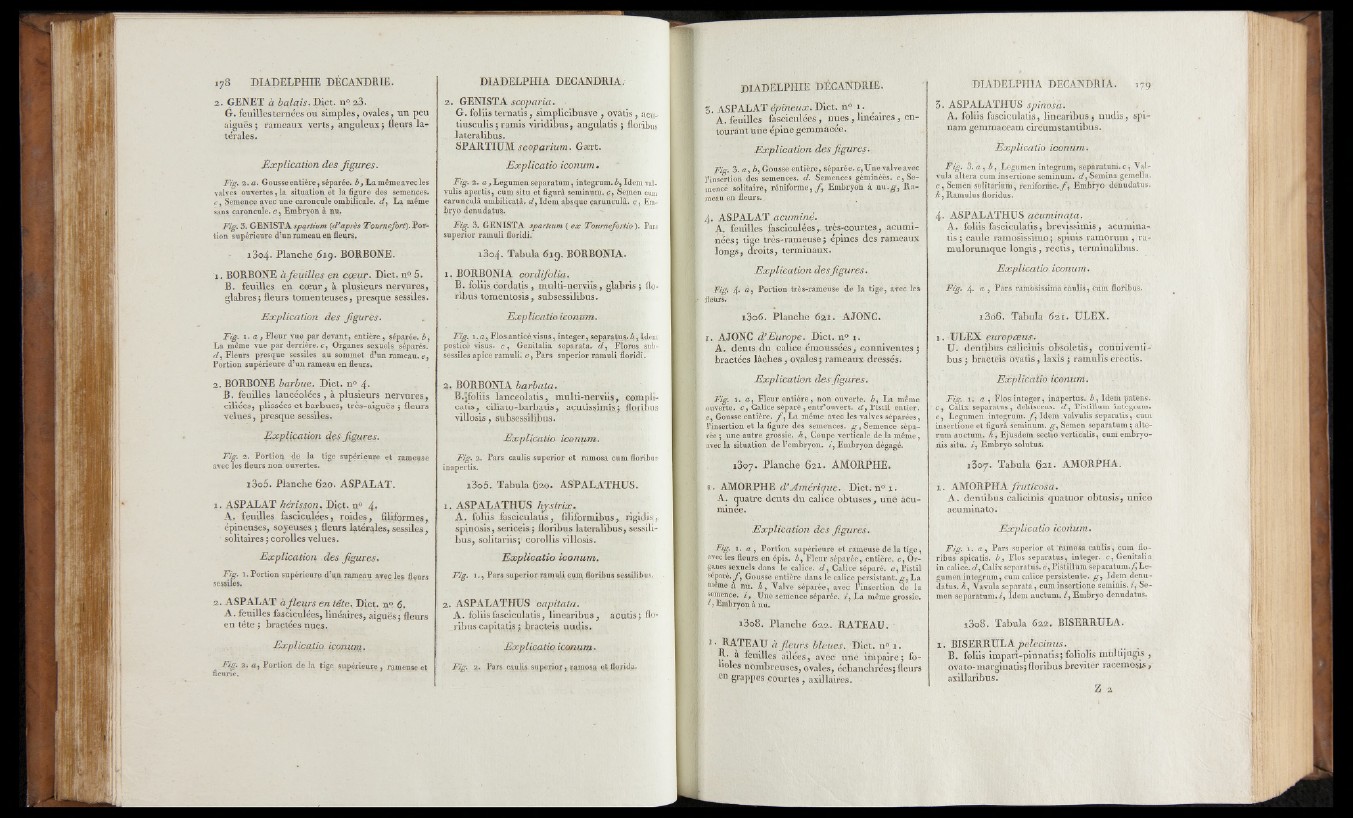 178 DIADELPHIE DÉCANDRIE.
2. GENET à balais. Dict. n° 23.
G. feuilles ternées ou simples, ovales, un peu
aiguës; rameaux verts, anguleux; fleurs la-
térales.
Explication des figures.
Fig. 2. a. Gousse entière, séparée. b, La même avec les
valves ouvertes, la situation et la figure des semences.
c, Semence avec une caroncule ombilicale. d, La même
sans caroncule. e, Embryon à nu.
Fig. 3. GENISTA spartium (d'après Tournefort). Por-
tion supérieure d'un rameau en fleurs.
1304. Planche 619. BORBONE.
1. BORBONE à feuilles en cœur. Dict. n° 5.
B. feuilles en cœur, à plusieurs nervures,
glabres; fleurs tomenteuses, presque sessiles.
Explication des figures.
Fig. 1. a, Fleur vue par devant, entière, séparée. b,
La même vue par derrière. c, Organes sexuels séparés.
d, Fleurs presque sessiles au sommet d'un rameau. e,
Portion supérieure d'un rameau en fleurs.
2. BORBONE barbue. Dict. n° 4.
B. feuilles lancéolées, à plusieurs nervures,
ciliées, plissées et barbues, très-aiguës; fleurs
velues, presque sessiles.
Explication des figures.
Fig. 2. Portion de la tige supérieure et rameuse
avec les fleurs non ouvertes.
1305. Planche 620. ASPALAT.
1. ASPALAT hérisson. Dict. n° 4.
A. feuilles fasciculées, roides, filiformes,
épineuses, soyeuses; fleurs latérales, sessiles,
solitaires; corolles velues.
Explication des figures.
Fig. 1. Portion supérieure d'un rameau avec les fleurs
sessiles.
2. ASPALAT à fleurs en tête. Dict. n° 6.
A. feuilles fasciculées, linéaires, aiguës; fleurs
en tête; bractées nues.
Explicatio iconum.
Fig. 2. a, Portion de la tige supérieure, rameuse et
fleurie.
DIADELPHIA DECANDRIA.
2. GENISTA scoparia.
G. foliis ternatis, simplicibusve, ovatis, acu-
tiusculis; ramis viridibus, angulatis; floribus
lateralibus.
SPARTIUM scoparium. Gært.
Explicatio iconum.
Fig. 2. a, Legumen separatum, integrum. b, Idem val-
vulis apertis, cum situ et figurâ seminum. c, Semen cum
carunculâ umbilicatâ. d, Idem absque carunculâ. e, Em-
bryo denudatus.
Fig. 3. GENISTA spartium (ex Tournefortio). Pars
superior ramuli floridi.
1304. Tabula 619. BORBONIA.
1. BORBONIA cordifolia.
B. foliis cordatis, multi-nerviis, glabris; flo-
ribus tomentosis, subsessilibus.
Explicatio iconum.
Fig. 1. a, Flos anticè visus, integer, separatus. b, Idem
posticè visus. c, Genitalia separata. d, Flores sub-
sessiles apice ramuli. e, Pars superior ramuli floridi.
2. BORBONIA barbata.
B. foliis lanceolatis, multi-nerviis, compli-
catis, ciliato-barbatis, acutissimis; floribus
villosis, subsessilibus.
Explicatio iconum.
Fig. 2. Pars caulis superior et ramosa cum floribus
inapertis.
1305. Tabula 620. ASPALATHUS.
1. ASPALATHUS hystrix.
A. foliis fasciculatis, filiformibus, rigidis,
spinosis, sericeis; floribus lateralibus, sessili-
bus, solitariis; corollis villosis.
Explicatio iconum.
Fig. 1., Pars superior ramuli cum floribus sessilibus.
2. ASPALATHUS capitata.
A. foliis fasciculatis, linearibus, acutis; flo-
ribus capitatis; bracteis nudis.
Explicatio iconum.
Fig. 2. Pars caulis superior, ramosa et florida.
DIADELPHIE DÉCANDRIE.
3. ASPALAT épineux. Dict. n° 1.
A. feuilles fasciculées, nues, linéaires, en-
tourant une épine gemmacée.
Explication des figures.
Fig. 3. a, b, Gousse entière, séparée. c, Une valve avec
l'insertion des semences. d. Semences géminées. e, Se-
mence solitaire, réniforme, f, Embryon à nu. g, Ra-
meau en fleurs.
4. ASPALAT acuminé.
A. feuilles fasciculées, très-courtes, acumi-
nées; tige très-rameuse; épines des rameaux
longs, droits, terminaux.
Explication des figures.
Fig. 4. a, Portion très-rameuse de la tige, avec les
fleurs.
1306. Planche 621. AJONC.
1. AJONC d'Europe. Dict. n° 1.
A. dents du calice émoussées, conniventes;
bractées lâches, ovales; rameaux dressés.
Explication des figures.
Fig. 1. a, Fleur entière, non ouverte. b, La même
ouverte. c, Calice séparé, entr'ouvert. d, Pistil entier.
e, Gousse entière. f, La même avec les valves séparées,
l'insertion et la figure des semences. g, Semence sépa-
rée; une autre grossie. h, Coupe verticale de la même,
avec la situation de l'embryon. i, Embryon dégagé.
1307. Planche 621. AMORPHE.
1. AMORPHE d'Amérique. Dict. n° 1.
A. quatre dents du calice obtuses, une acu-
minée.
Explication des figures.
Fig. 1. a, Portion supérieure et rameuse de la tige,
avec les fleurs en épis. b, Fleur séparée, entière. c, Or-
ganes sexuels dans le calice. d, Calice séparé. e, Pistil
séparé. f, Gousse entière dans le calice persistant. g, La
même à nu. h, Valve séparée, avec l'insertion de la
semence. i, Une semence séparée. i, La même grossie.
l, Embryon à nu.
1308. Planche 622. RATEAU.
1. RATEAU à fleurs bleues. Dict. n° 1.
R. à feuilles ailées, avec une impaire; fo-
lioles nombreuses, ovales, échancrées; fleurs
en grappes courtes, axillaires.
DIADELPHIA DECANDRIA. 179
3. ASPALATHUS spinosa.
A. foliis fasciculatis, linearibus, nudis, spi-
nam gemmaceam circumstantibus.
Explicatio iconum.
Fig. 3. a, b, Legumen integrum, separatum. c, Val-
vula altera cum insertione seminum. d, Semina gemella.
e, Semen solitarium, reniforme. f, Embryo denudatus.
h, Ramulus floridus.
4. ASPALATHUS acuminata.
A. foliis fasciculatis, brevissimis, acumina-
tis; caule ramosissimo; spinis ramorum, ra-
mulorumque longis, rectis, terminalibus.
Explicatio iconum.
Fig. 4. a, Pars ramosissima caulis, cum floribus.
1306. Tabula 621. ULEX.
1. ULEX europœus.
U. dentibus calicinis obsoletis, conniventi-
bus; bracteis ovatis, laxis; ramulis erectis.
Explicatio iconum.
Fig. 1. a, Flos integer, inapertus. b, Idem patens.
c, Calix separatus, dehiscens. d, Pistillum integrum.
e, Legumen integrum. f, Idem valvulis separatis, cum
insertione et figurâ seminum. g, Semen separatum; alte-
rum auctum. h, Ejusdem sectio verticalis, cum embryo-
nis situ. i, Embryo solutus.
1307. Tabula 621. AMORPHA.
1. AMORPHA fruticosa.
A. dentibus calicinis quatuor obtusis, unico
acuminato.
Explicatio iconum.
Fig. 1. a, Pars superior et ramosa caulis, cum flo-
ribus spicatis. b, Flos separatus, integer. c, Genitalia
in calice. d, Calix separatus. e, Pistillum separatum. f, Le-
gumen integrum, cum calice persistente. g, Idem denu-
datus. h, Vavula separata, cum insertione seminis. i, Se-
men separatum. i, Idem auctum. l, Embryo denudatus.
1308. Tabula 622. BISERRULA.
1. BISERRULA pelecinus.
B. foliis impari-pinnatis; foliolis multijugis,
ovato-marginatis; floribus breviter racemosis,
axillaribus.
Z 2